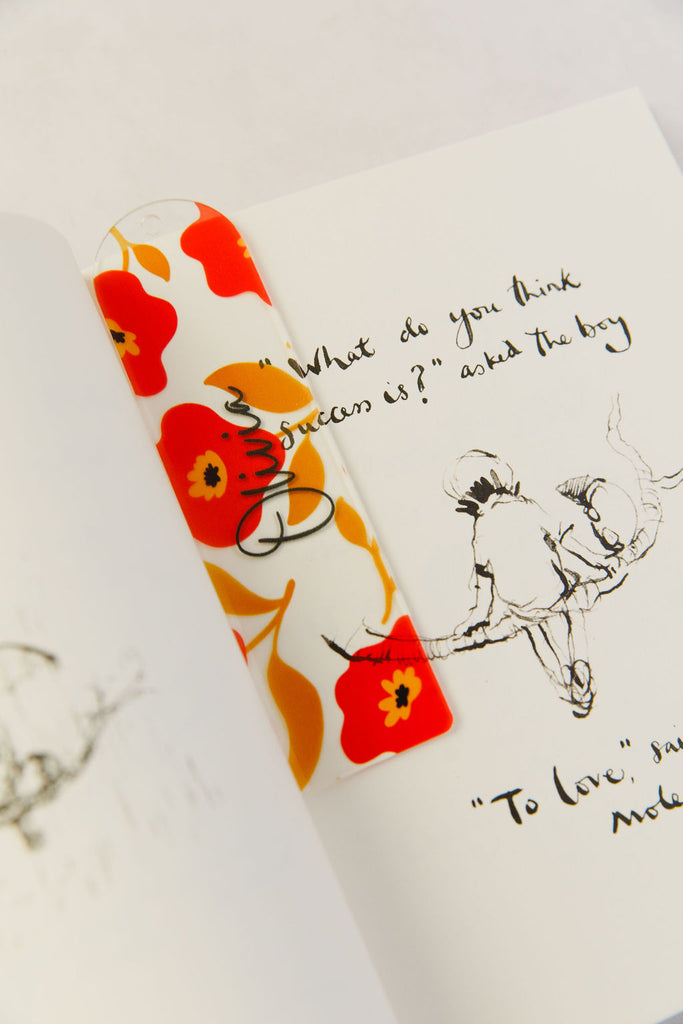 Olivia
"What do you think
success is?" asked the boy
"To love," sai
mole